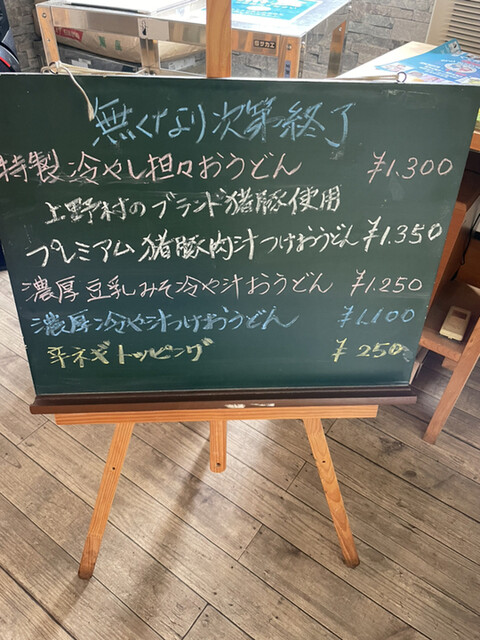 無くなり次第終了
特製冷やし担々おうどん ¥1.300
上野村のブランド猪豚使用
プレミアム猪豚肉汁つけおうどん ¥1.350
濃厚豆乳みそ冷や汁おうどん ¥1.250
濃厚冷や汁つけおうどん ¥1.100
辛ネギトッピング ¥250
サカエ